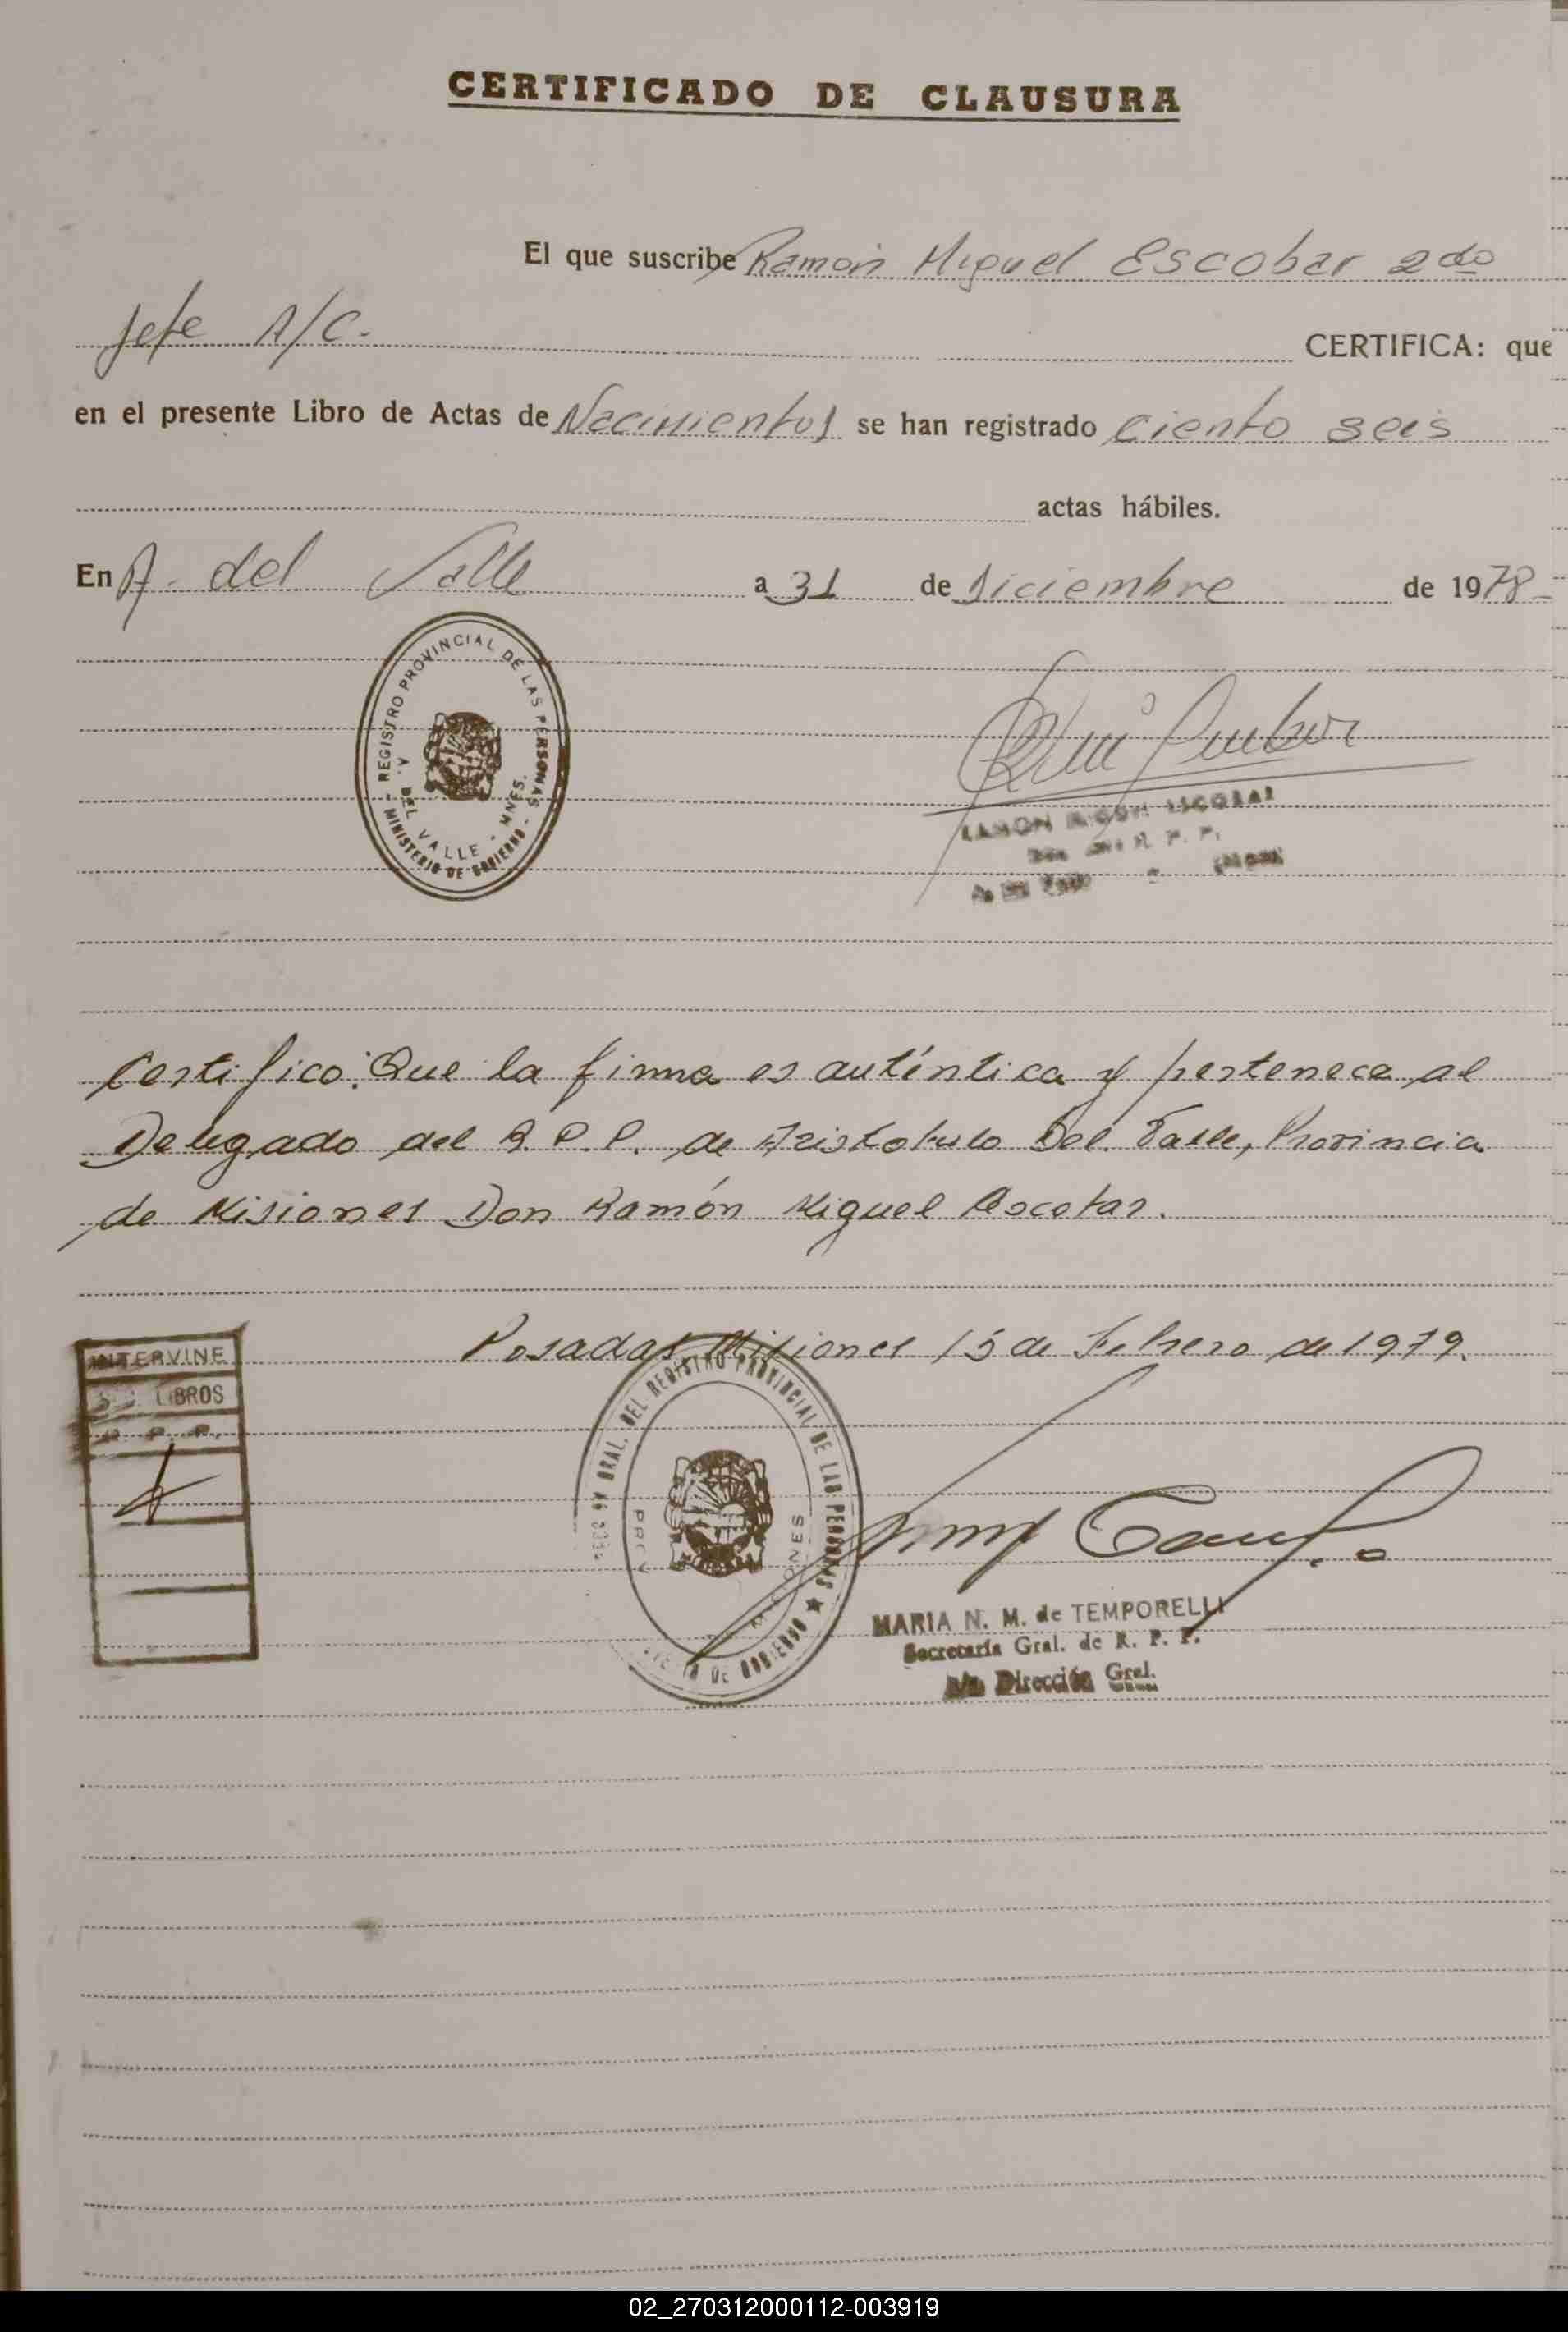 CERTIFICADO DE CLAUSURA
El que suscribe Ramón Miguel Escobar 2do
Jefe A/C. CERTIFICA: que
en el presente Libro de Actas de Nacimientos se han registrado ciento seis
actas hábiles.
En A. del Valle a 31 de Diciembre de 1978-
REGISTRO PROVINCIAL DE LAS PERSONAS
A. DEL VALLE - MNES.
- MINISTERIO DE GOBIERNO -
RAMON MIGUEL ESCOBAR
R. P. P.
Certifico: Que la firma es auténtica y pertenece al
Delegado del R.P.P. de Aristobulo Del Valle, Provincia
de Misiones Don Ramón Miguel Escobar.
Posadas Misiones 15 de Febrero de 1979.
INTERVINE
LIBROS
R. P. P.
GRAL. DEL REGISTRO PROVINCIAL DE LAS PERSONAS
DE GOBIERNO
MARIA N. M. de TEMPORELLI
Secretaría Gral. de R. P. P.
A/c Dirección Gral.
02_270312000112-003919